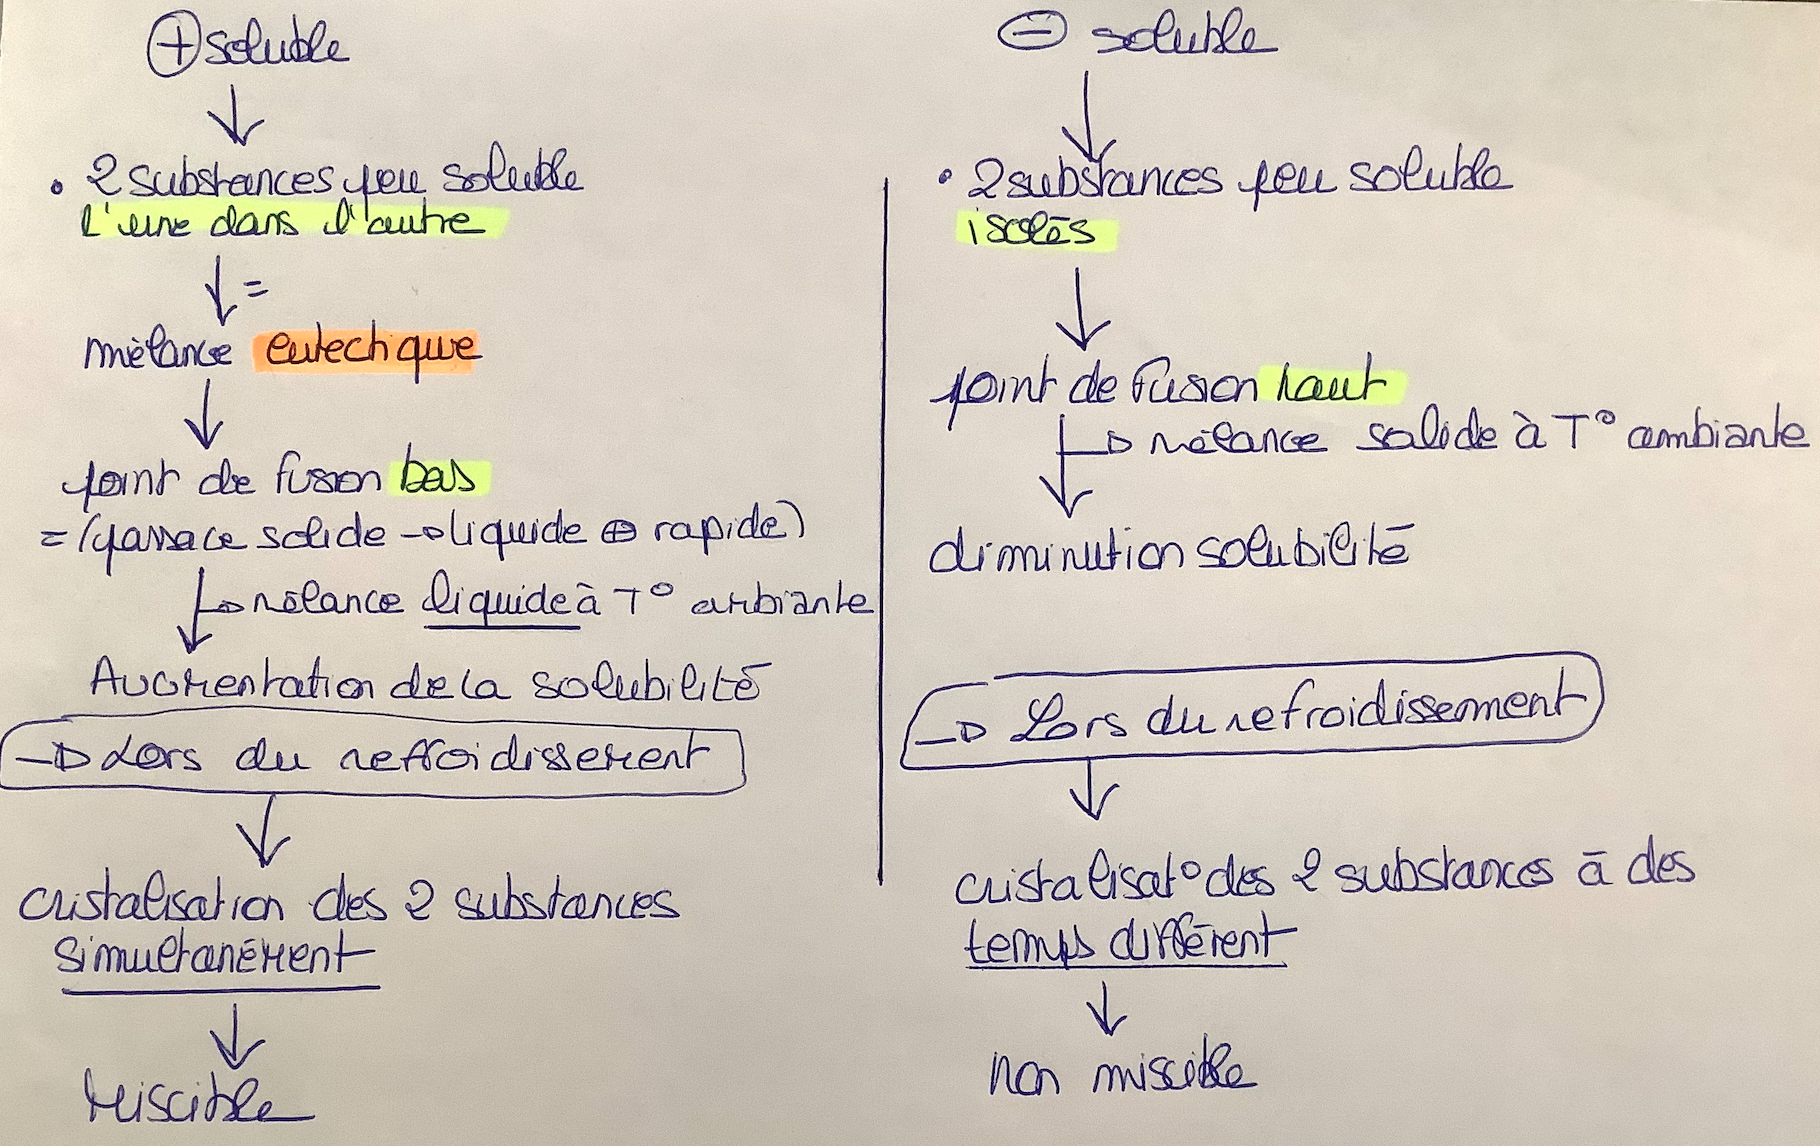 ⊕ soluble
↓
• 2 substances peu soluble
l'une dans l'autre
↓ =
mélange eutectique
↓
point de fusion bas
= (passage solide → liquide ⊕ rapide)
↳ mélange liquide à T° ambiante
Augmentation de la solubilité
→ Lors du reffroidissement
↓
cristalisation des 2 substances
simultanément
↓
Miscible
⊖ soluble
↓
• 2 substances peu soluble
isolés
↓
point de fusion haut
↳ mélange solide à T° ambiante
↓
diminution solubilité
→ Lors du refroidissement
↓
cristalisat° des 2 substances à des
temps différent
↓
non miscible